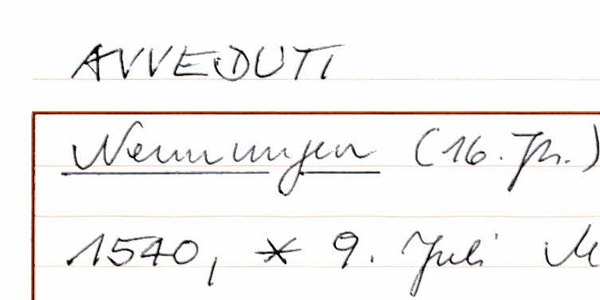 AVVEDUTI
Nennungen (16. Jh.)
1540, * 9. Juli